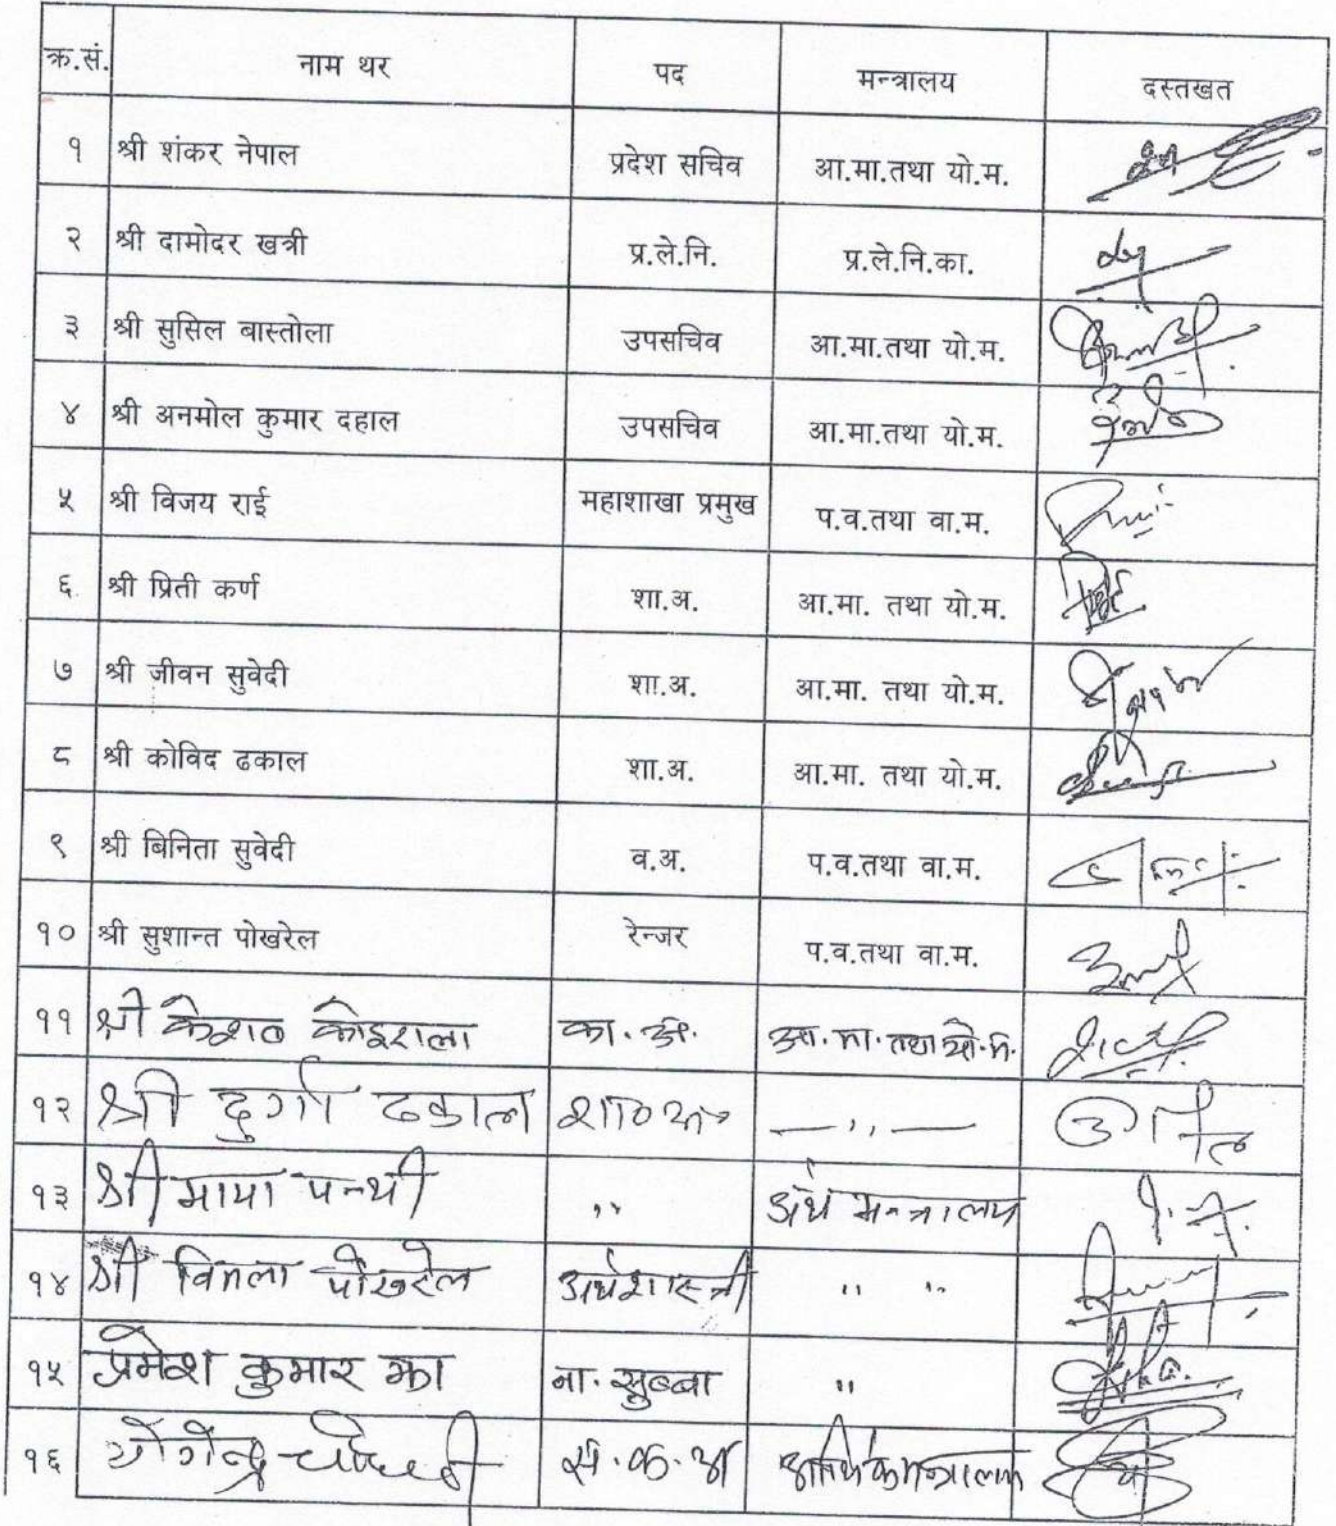 क्र.सं. नाम थर पद मन्त्रालय दस्तखत
१ श्री शंकर नेपाल प्रदेश सचिव आ.मा.तथा यो.म.
२ श्री दामोदर खत्री प्र.ले.नि. प्र.ले.नि.का.
३ श्री सुसिल बास्तोला उपसचिव आ.मा.तथा यो.म.
४ श्री अनमोल कुमार दहाल उपसचिव आ.मा.तथा यो.म.
५ श्री विजय राई महाशाखा प्रमुख प.व.तथा वा.म.
६ श्री प्रिती कर्ण शा.अ. आ.मा. तथा यो.म.
७ श्री जीवन सुवेदी शा.अ. आ.मा. तथा यो.म.
८ श्री कोविद ढकाल शा.अ. आ.मा. तथा यो.म.
९ श्री बिनिता सुवेदी व.अ. प.व.तथा वा.म.
१० श्री सुशान्त पोखरेल रेन्जर प.व.तथा वा.म.
११ श्री केशव कोइराला का.अ. आ.मा.तथा यो.म.
१२ श्री दुर्गा ढकाल शा० अ० —,,—
१३ श्री माया पन्थी ,, अर्थ मन्त्रालय
१४ श्री विमला पोखरेल अर्थशास्त्री ,, ,,
१५ प्रमेश कुमार झा ना. सुब्बा ,,
१६ योगेन्द्र चौधरी स.क.अ